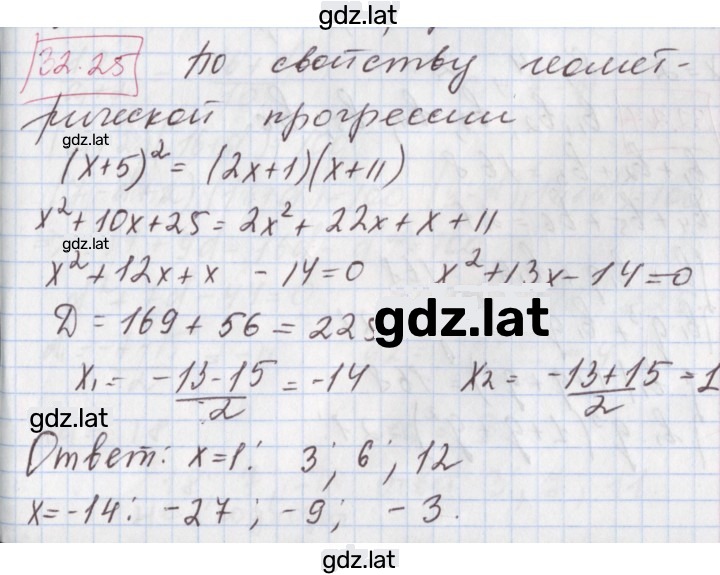 gdz.lat
32.25 По свойству геомет-
рической прогрессии
gdz.lat
(x+5)² = (2x+1)(x+11)
x²+10x+25=2x²+22x+x+11
gdz.lat
x²+12x+x -14=0 x²+13x-14=0
gdz.lat
Д=169+56=225
x₁= -13-15/2 =-14 x₂= -13+15/2 =1
gdz.lat
Ответ: x=1: 3; 6; 12
x=-14: -27; -9; -3.
gdz.lat